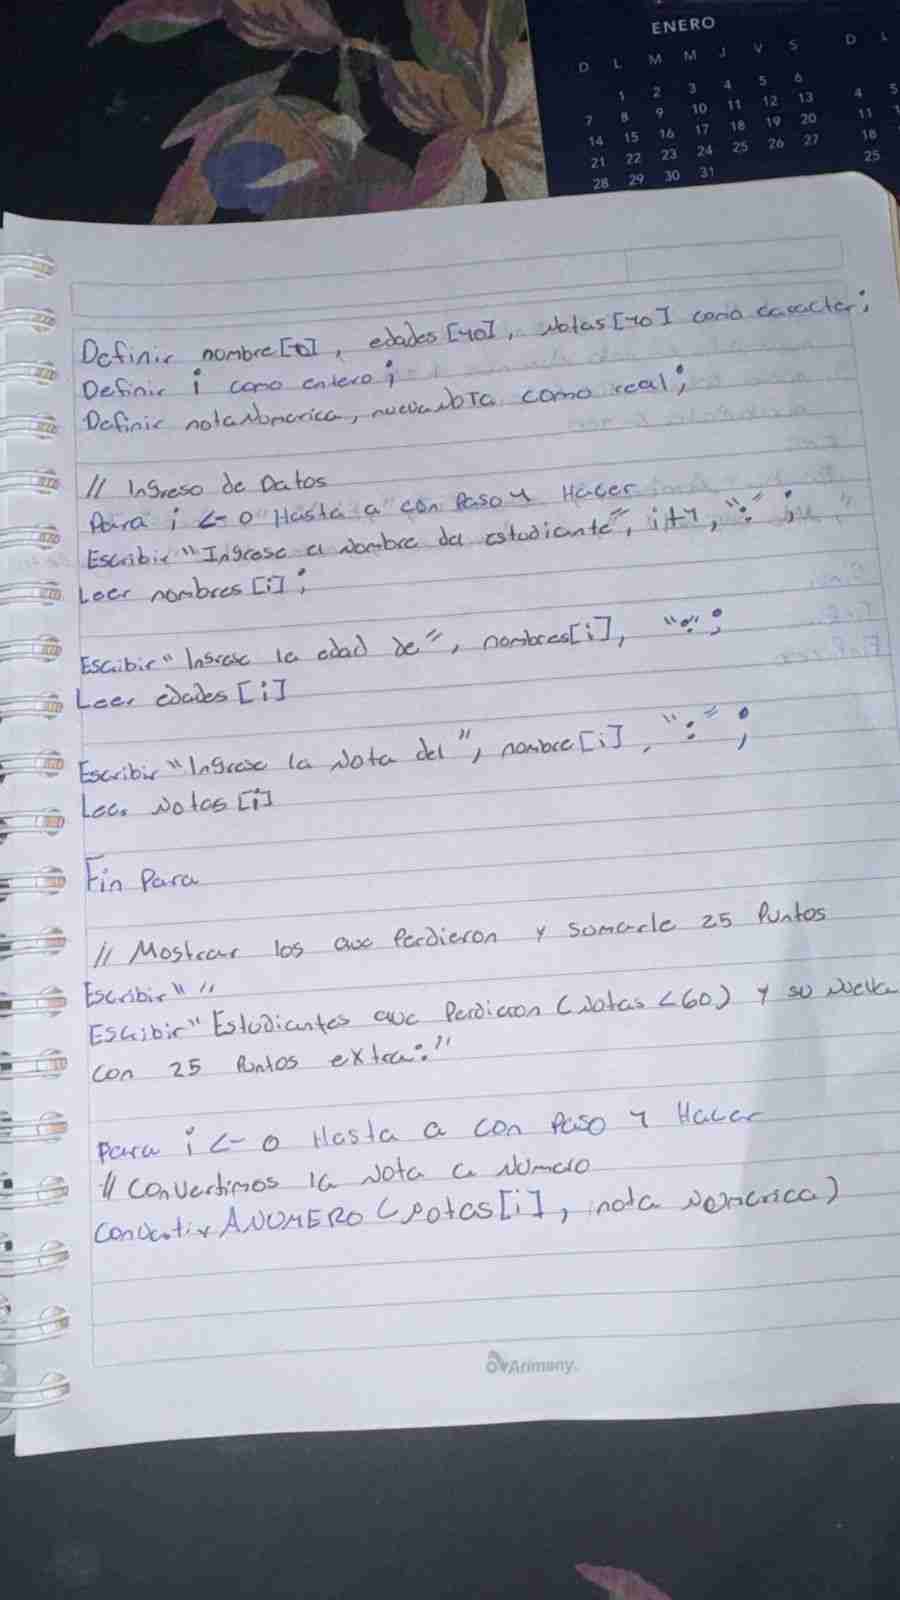 ENERO
D L M M J V S
1 2 3 4 5 6
7 8 9 10 11 12 13
14 15 16 17 18 19 20
21 22 23 24 25 26 27
28 29 30 31
D L
4 5
11
18
25
Definir nombre[10], edades[40], notas[40] como caracter;
Definir i como entero;
Definir notaNumerica, nuevaNota como real;
// Ingreso de Datos
Para i <- 0 "Hasta a" con Paso 4 Hacer
Escribir "Ingrese el nombre del estudiante", i+4, ":" ;
Leer nombres [i];
Escribir "Ingrese la edad de", nombres[i], ":";
Leer edades [i]
Escribir "Ingrese la Nota del", nombre[i], ":" ;
Leer Notas [i]
Fin Para
// Mostrar los que Perdieron y sumarle 25 Puntos
Escribir " "
Escribir "Estudiantes que Perdieron (Notas <60) y su Nueva
con 25 Puntos extra:"
Para i <- 0 Hasta a con Paso 4 Hacer
// Convertimos la Nota a Numero
Convertir ANUMERO (Notas[i], nota Numerica)
Arimany.